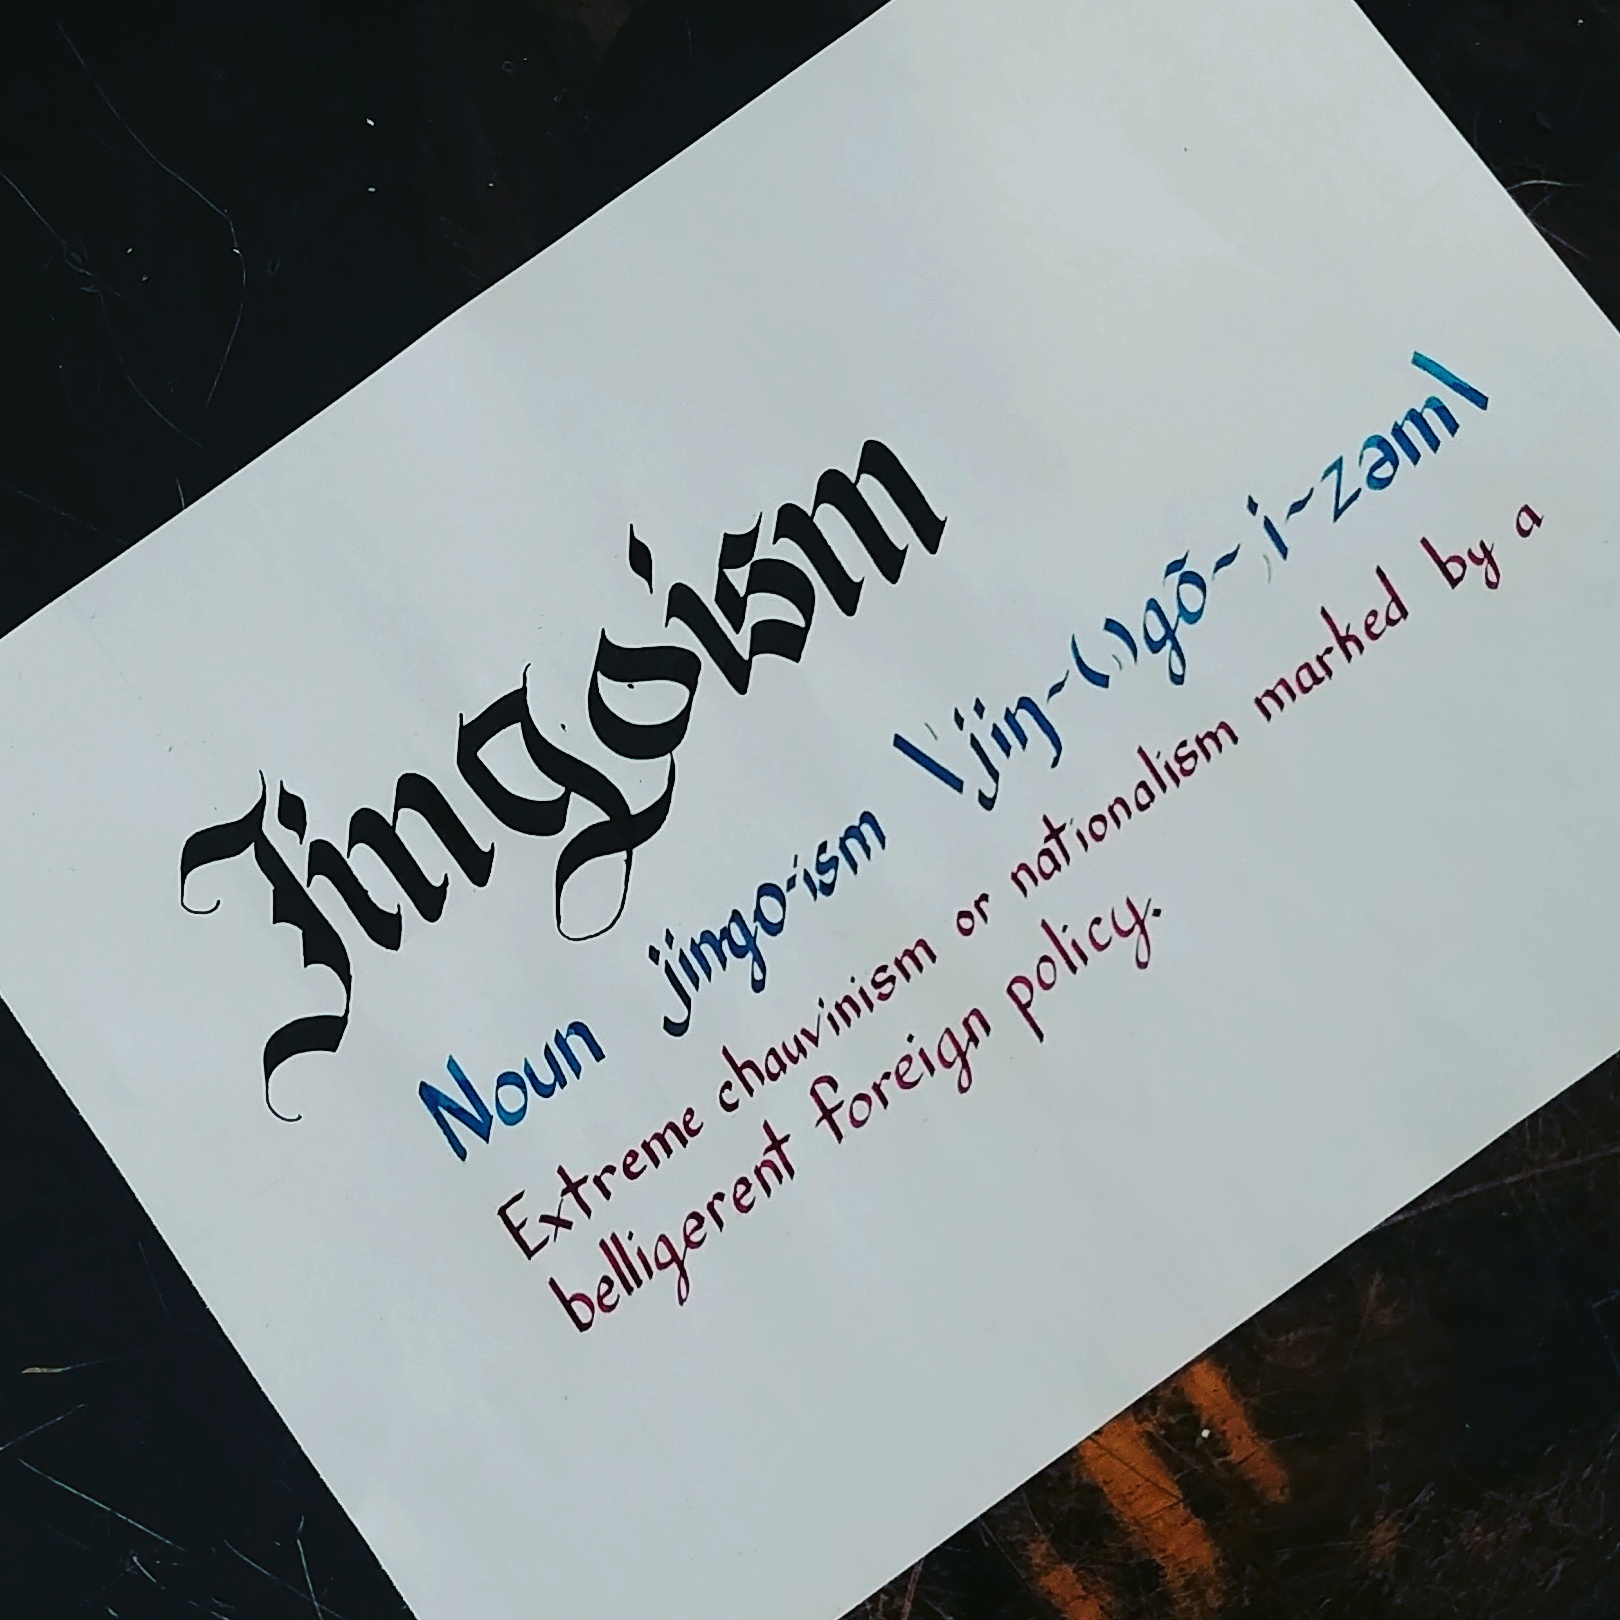 Jingoism
Noun jingo·ism \ˈjiŋ-(ˌ)gō-ˌi-zəm\
Extreme chauvinism or nationalism marked by a
belligerent foreign policy.